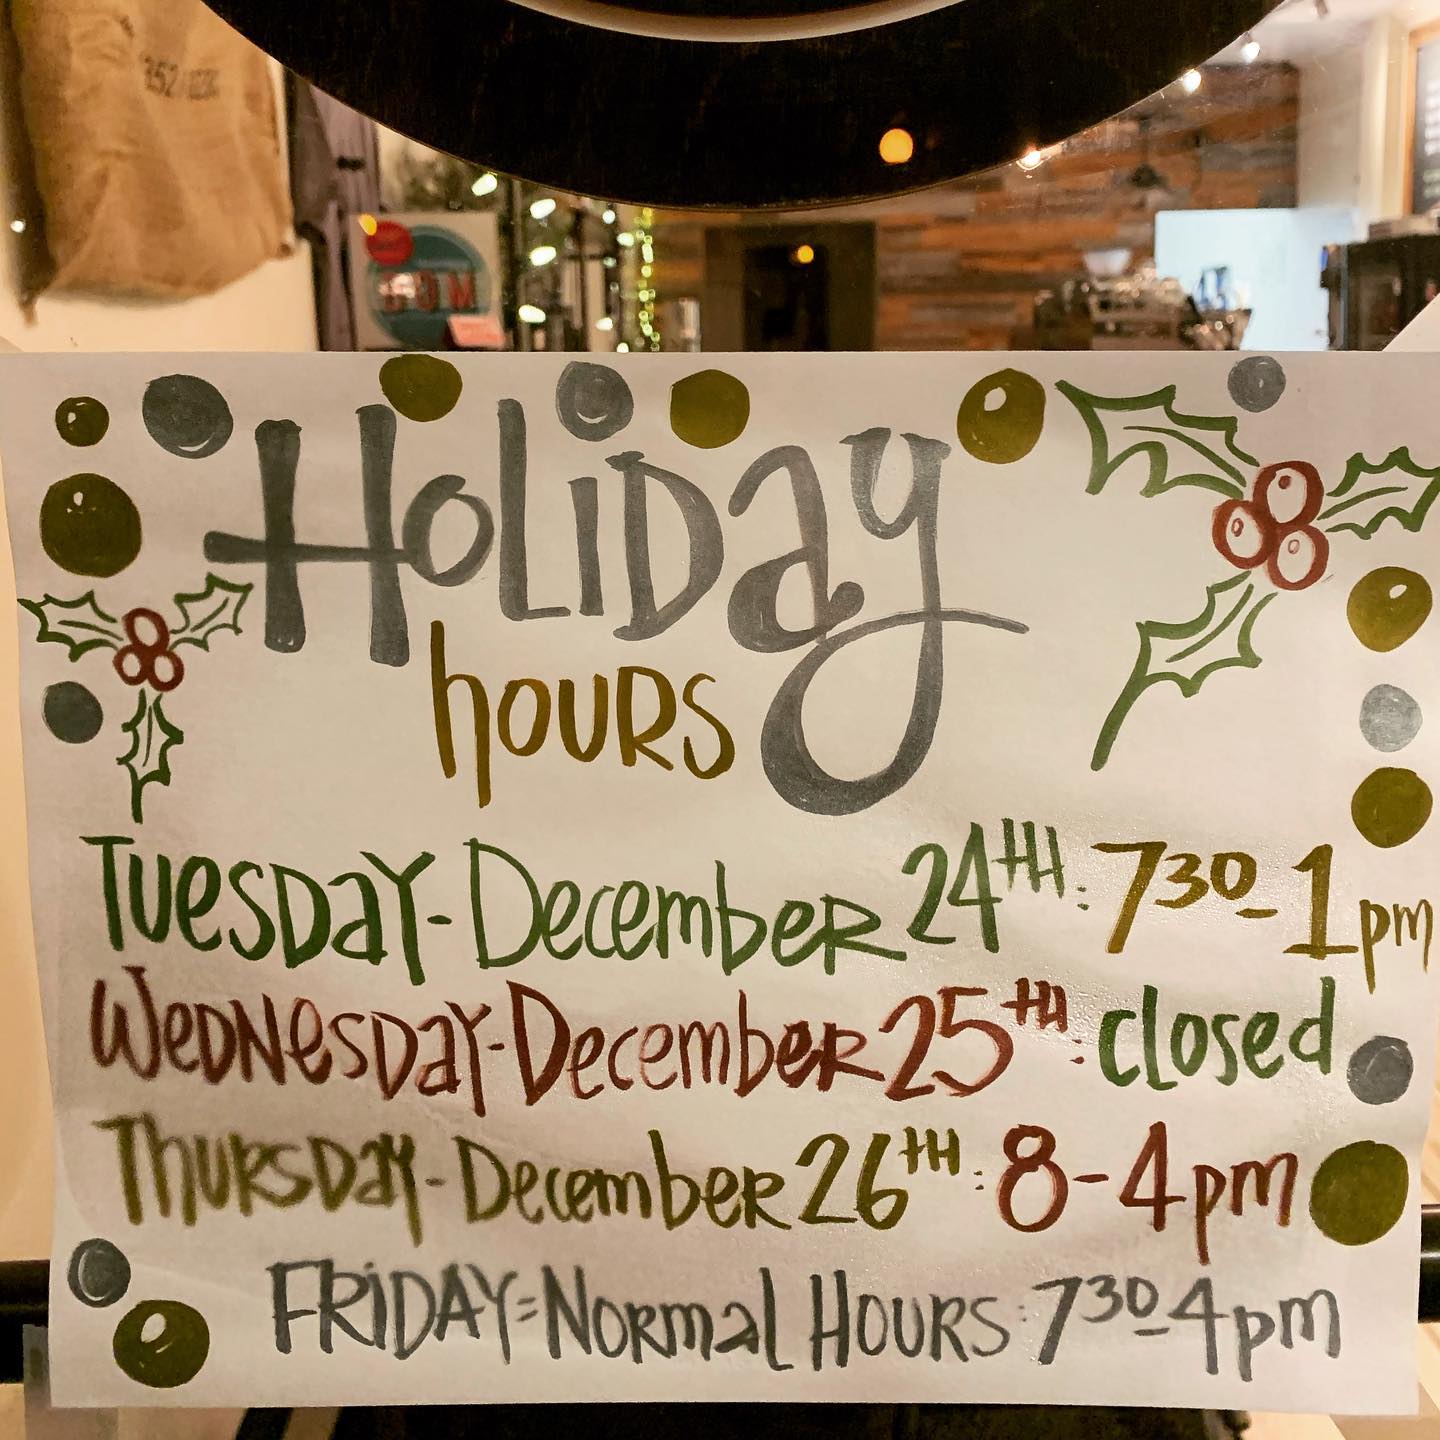 152/1
COM
Holiday
hours
Tuesday - December 24TH: 730 - 1pm
Wednesday - December 25TH: closed
Thursday - December 26TH: 8 - 4pm
Friday = Normal Hours: 730 - 4pm